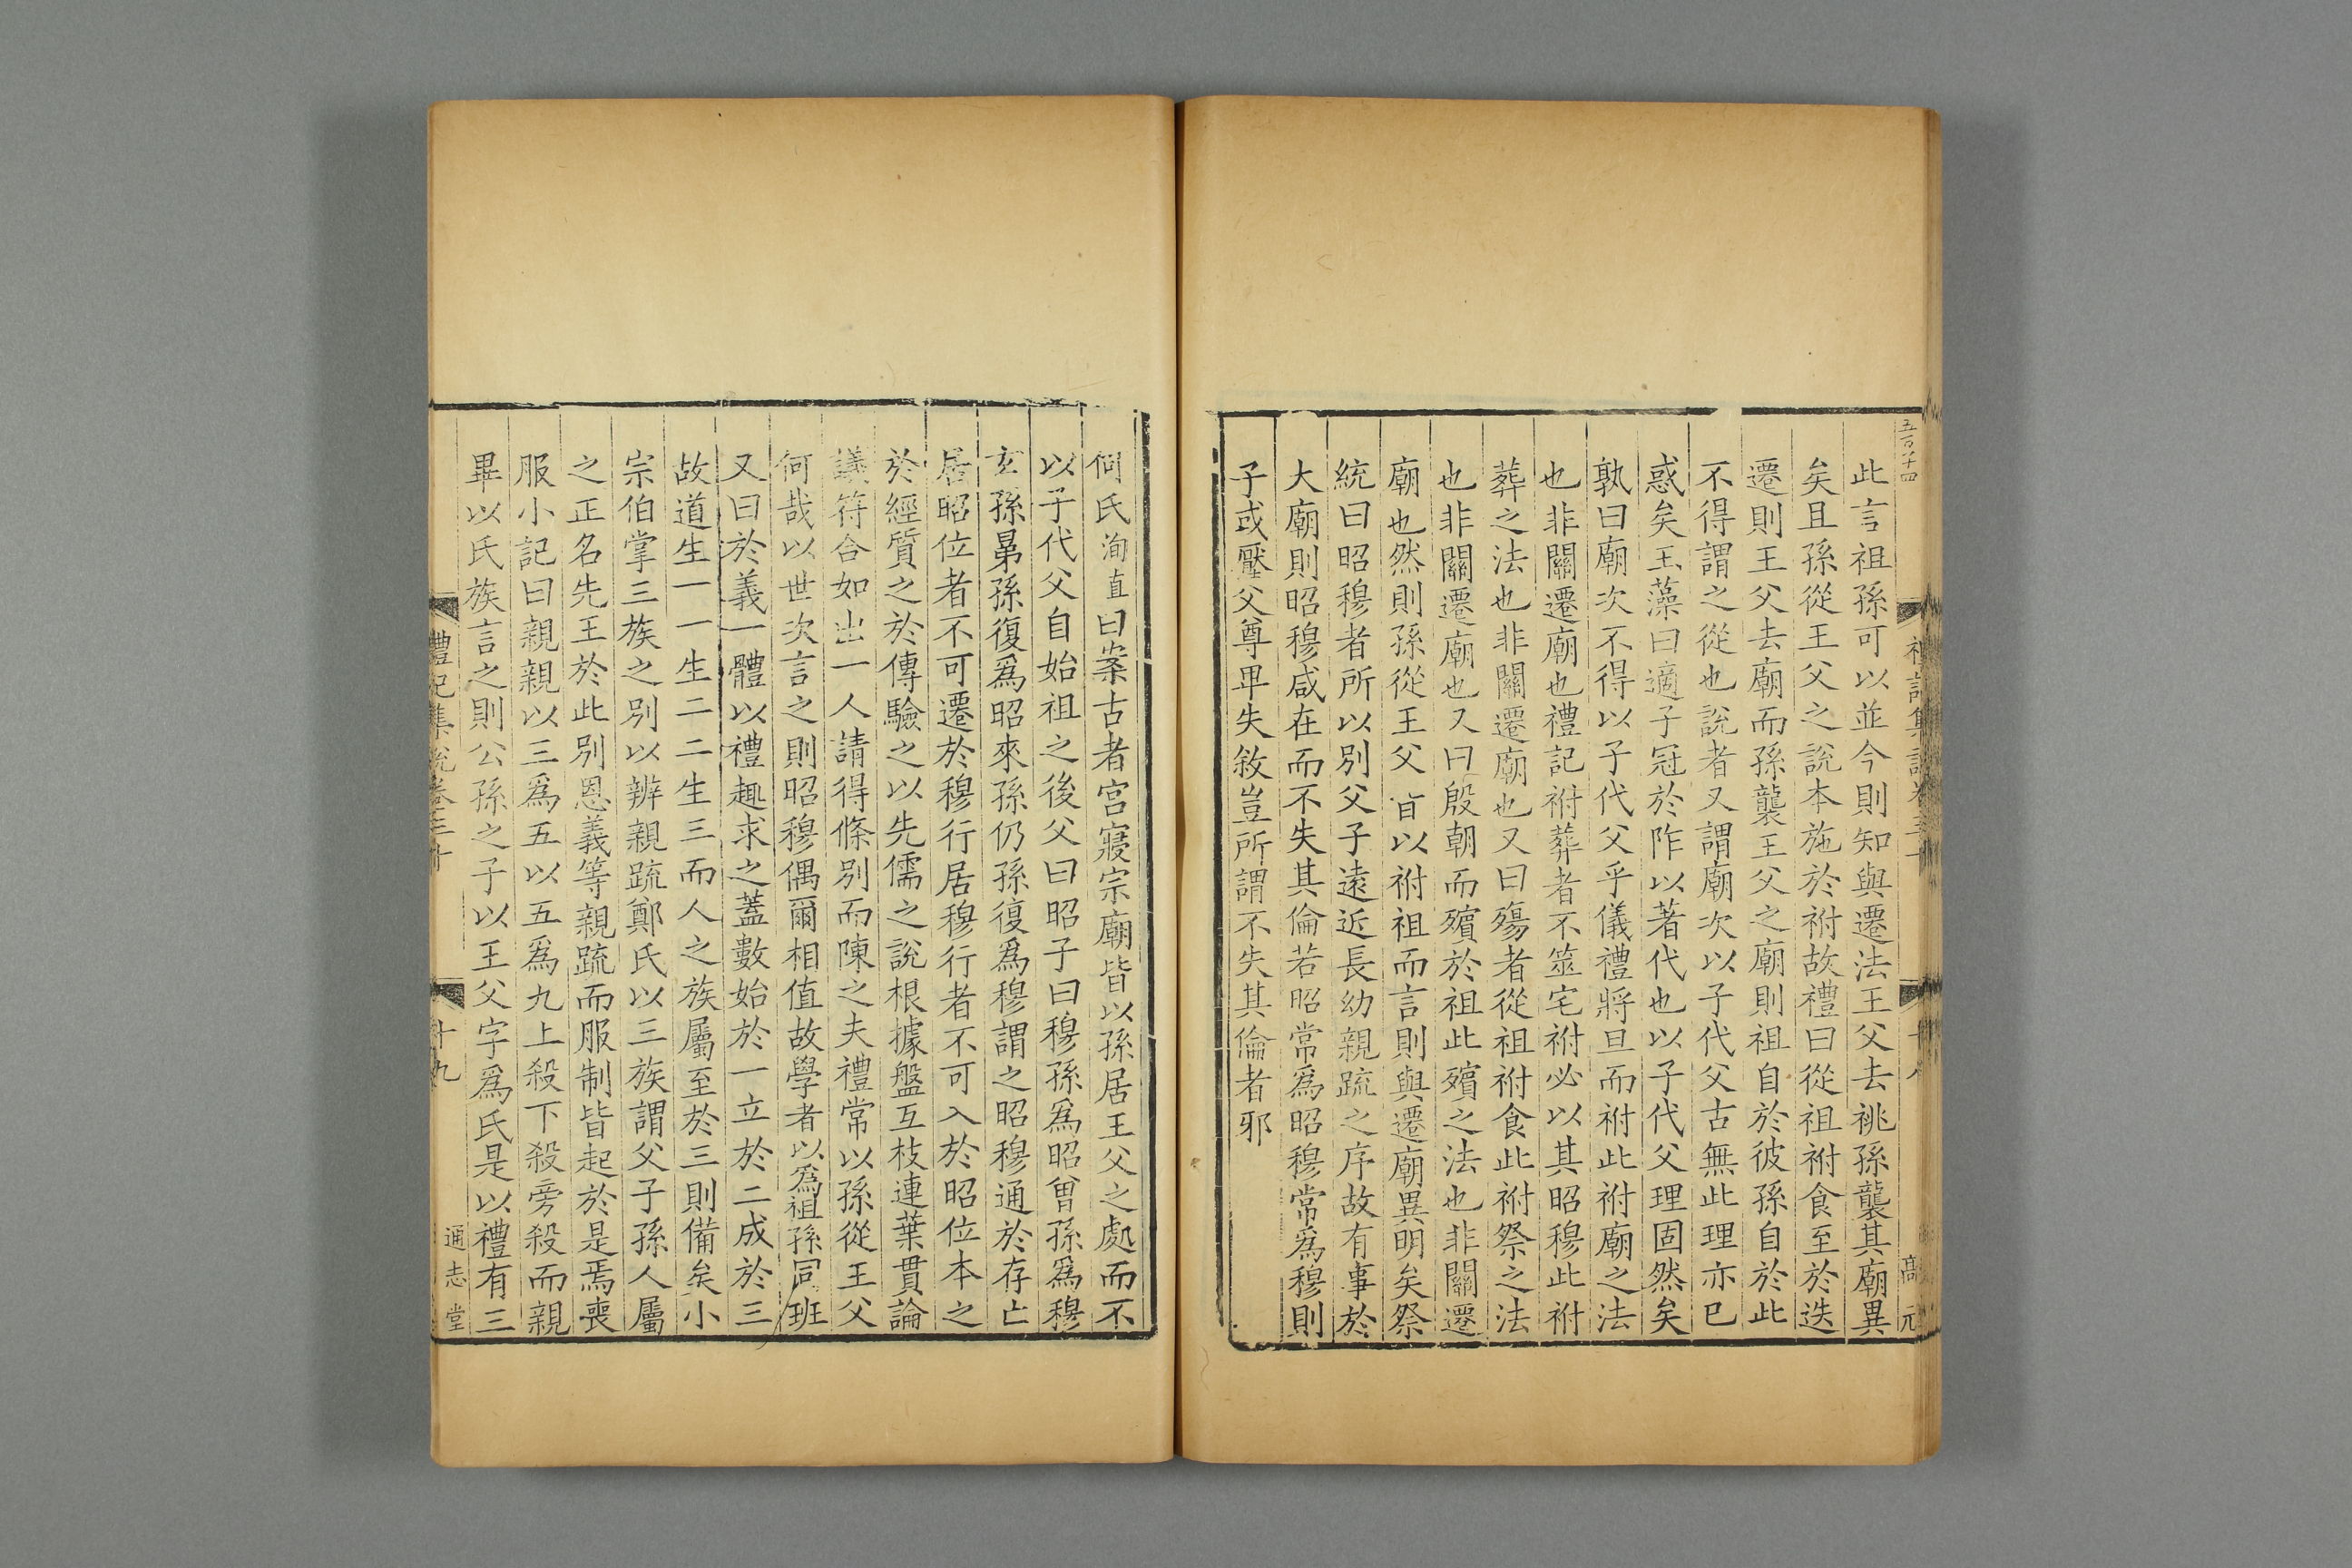 五百六十四
禮記集說卷三十
十八
高元
此言祖孫可以並今則知與遷法王父去祧孫襲其廟異
矣且孫從王父之說本施於祔故禮曰從祖祔食至於迭
遷則王父去廟而孫襲王父之廟則祖自於彼孫自於此
不得謂之從也說者又謂廟次以子代父古無此理亦已
惑矣玉藻曰適子冠於阼以著代也以子代父理固然矣
孰曰廟次不得以子代父乎儀禮將旦而祔此祔廟之法
也非關遷廟也禮記祔葬者不筮宅祔必以其昭穆此祔
葬之法也非關遷廟也又曰殤者從祖祔食此祔祭之法
也非關遷廟也又曰殷朝而殯於祖此殯之法也非關遷
廟也然則孫從王父皆以祔祖而言則與遷廟異明矣祭
統曰昭穆者所以別父子遠近長幼親疏之序故有事於
大廟則昭穆咸在而不失其倫若昭常為昭穆常為穆則
子或壓父尊卑失敘豈所謂不失其倫者邪
何氏洵直曰案古者宮寢宗廟皆以孫居王父之處而不
以子代父自始祖之後父曰昭子曰穆孫為昭曾孫為穆
玄孫晜孫復為昭來孫仍孫復為穆謂之昭穆通於存亡
居昭位者不可遷於穆行居穆行者不可入於昭位本之
於經質之於傳驗之以先儒之說根據盤互枝連葉貫論
議符合如出一人請得條別而陳之夫禮常以孫從王父
何哉以世次言之則昭穆偶爾相值故學者以為祖孫同班
又曰於義一體以禮趣求之蓋數始於一立於二成於三
故道生一一生二二生三而人之族屬至於三則備矣小
宗伯掌三族之別以辨親疏鄭氏以三族謂父子孫人屬
之正名先王於此別恩義等親疏而服制皆起於是焉喪
服小記曰親親以三為五以五為九上殺下殺旁殺而親
畢以氏族言之則公孫之子以王父字為氏是以禮有三
禮記集說卷三十
十九
通志堂